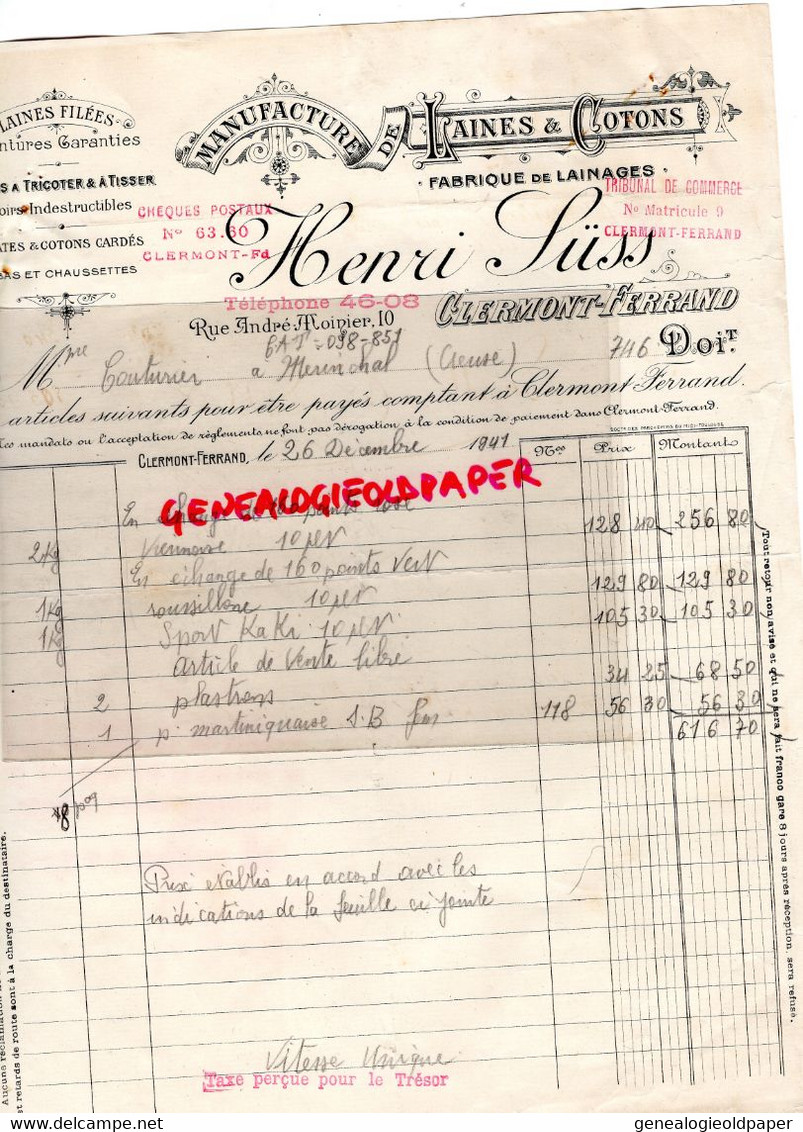 LAINES FILÉES
ntures Garanties
S A TRICOTER & À TISSER
oirs Indestructibles
ATES & COTONS CARDÉS
BAS ET CHAUSSETTES
MANUFACTURE DE LAINES & COTONS
FABRIQUE DE LAINAGES
CHEQUES POSTAUX
No 63.60
CLERMONT-Fd
TRIBUNAL DE COMMERCE
No Matricule 9
CLERMONT-FERRAND
Henri Süss
Téléphone 46-08
CLERMONT-FERRAND
Rue André-Moinier, 10
098-851
Mme Couturier à Merinchal (Creuse) 746 Doit
articles suivants pour être payés comptant à Clermont-Ferrand.
Les mandats ou l'acceptation de règlements ne font pas dérogation à la condition de paiement dans Clermont-Ferrand.
CLERMONT-FERRAND, le 26 Décembre 1941 Nos Prix Montant
GENEALOGIEOLDPAPER
En échange de points rose
2 Kg Viennoise 10 128 40 256 80
En échange de 160 points Vert
1 Kg roussillone 10 129 80 129 80
1 Kg Sport KaKi 10 105 30 105 30
article de Vente libre
2 plastrons 34 25 68 50
1 p. martiniquaise S.B 118 56 30 56 30
616 70
Prix établis en accord avec les
indications de la feuille ci jointe
Vitesse Unique
Taxe perçue pour le Trésor
Tout retour non avisé et qui ne sera fait franco gare 8 jours après réception, sera refusé.
Aucune réclamation
et retards de route sont à la charge du destinataire.
genealogieoldpaper